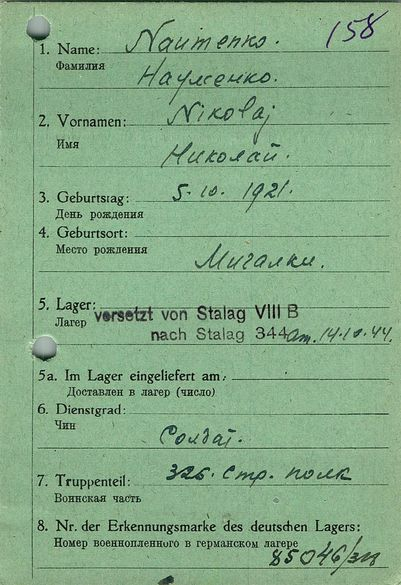 158
1. Name: Naumenko.
Фамилия
Науменко.
2. Vornamen: Nikolaj
Имя
Николай.
3. Geburtstag: 5. 10. 1921.
День рождения
4. Geburtsort:
Место рождения
Мигалки.
5. Lager:
Лагерь
versetzt von Stalag VIII B
nach Stalag 344 am. 14.10.44.
5a. Im Lager eingeliefert am:
Доставлен в лагерь (число)
6. Dienstgrad:
Чин
Солдат.
7. Truppenteil: 326. Стр. полк
Воинская часть
8. Nr. der Erkennungsmarke des deutschen Lagers:
Номер военнопленного в германском лагере
85046/